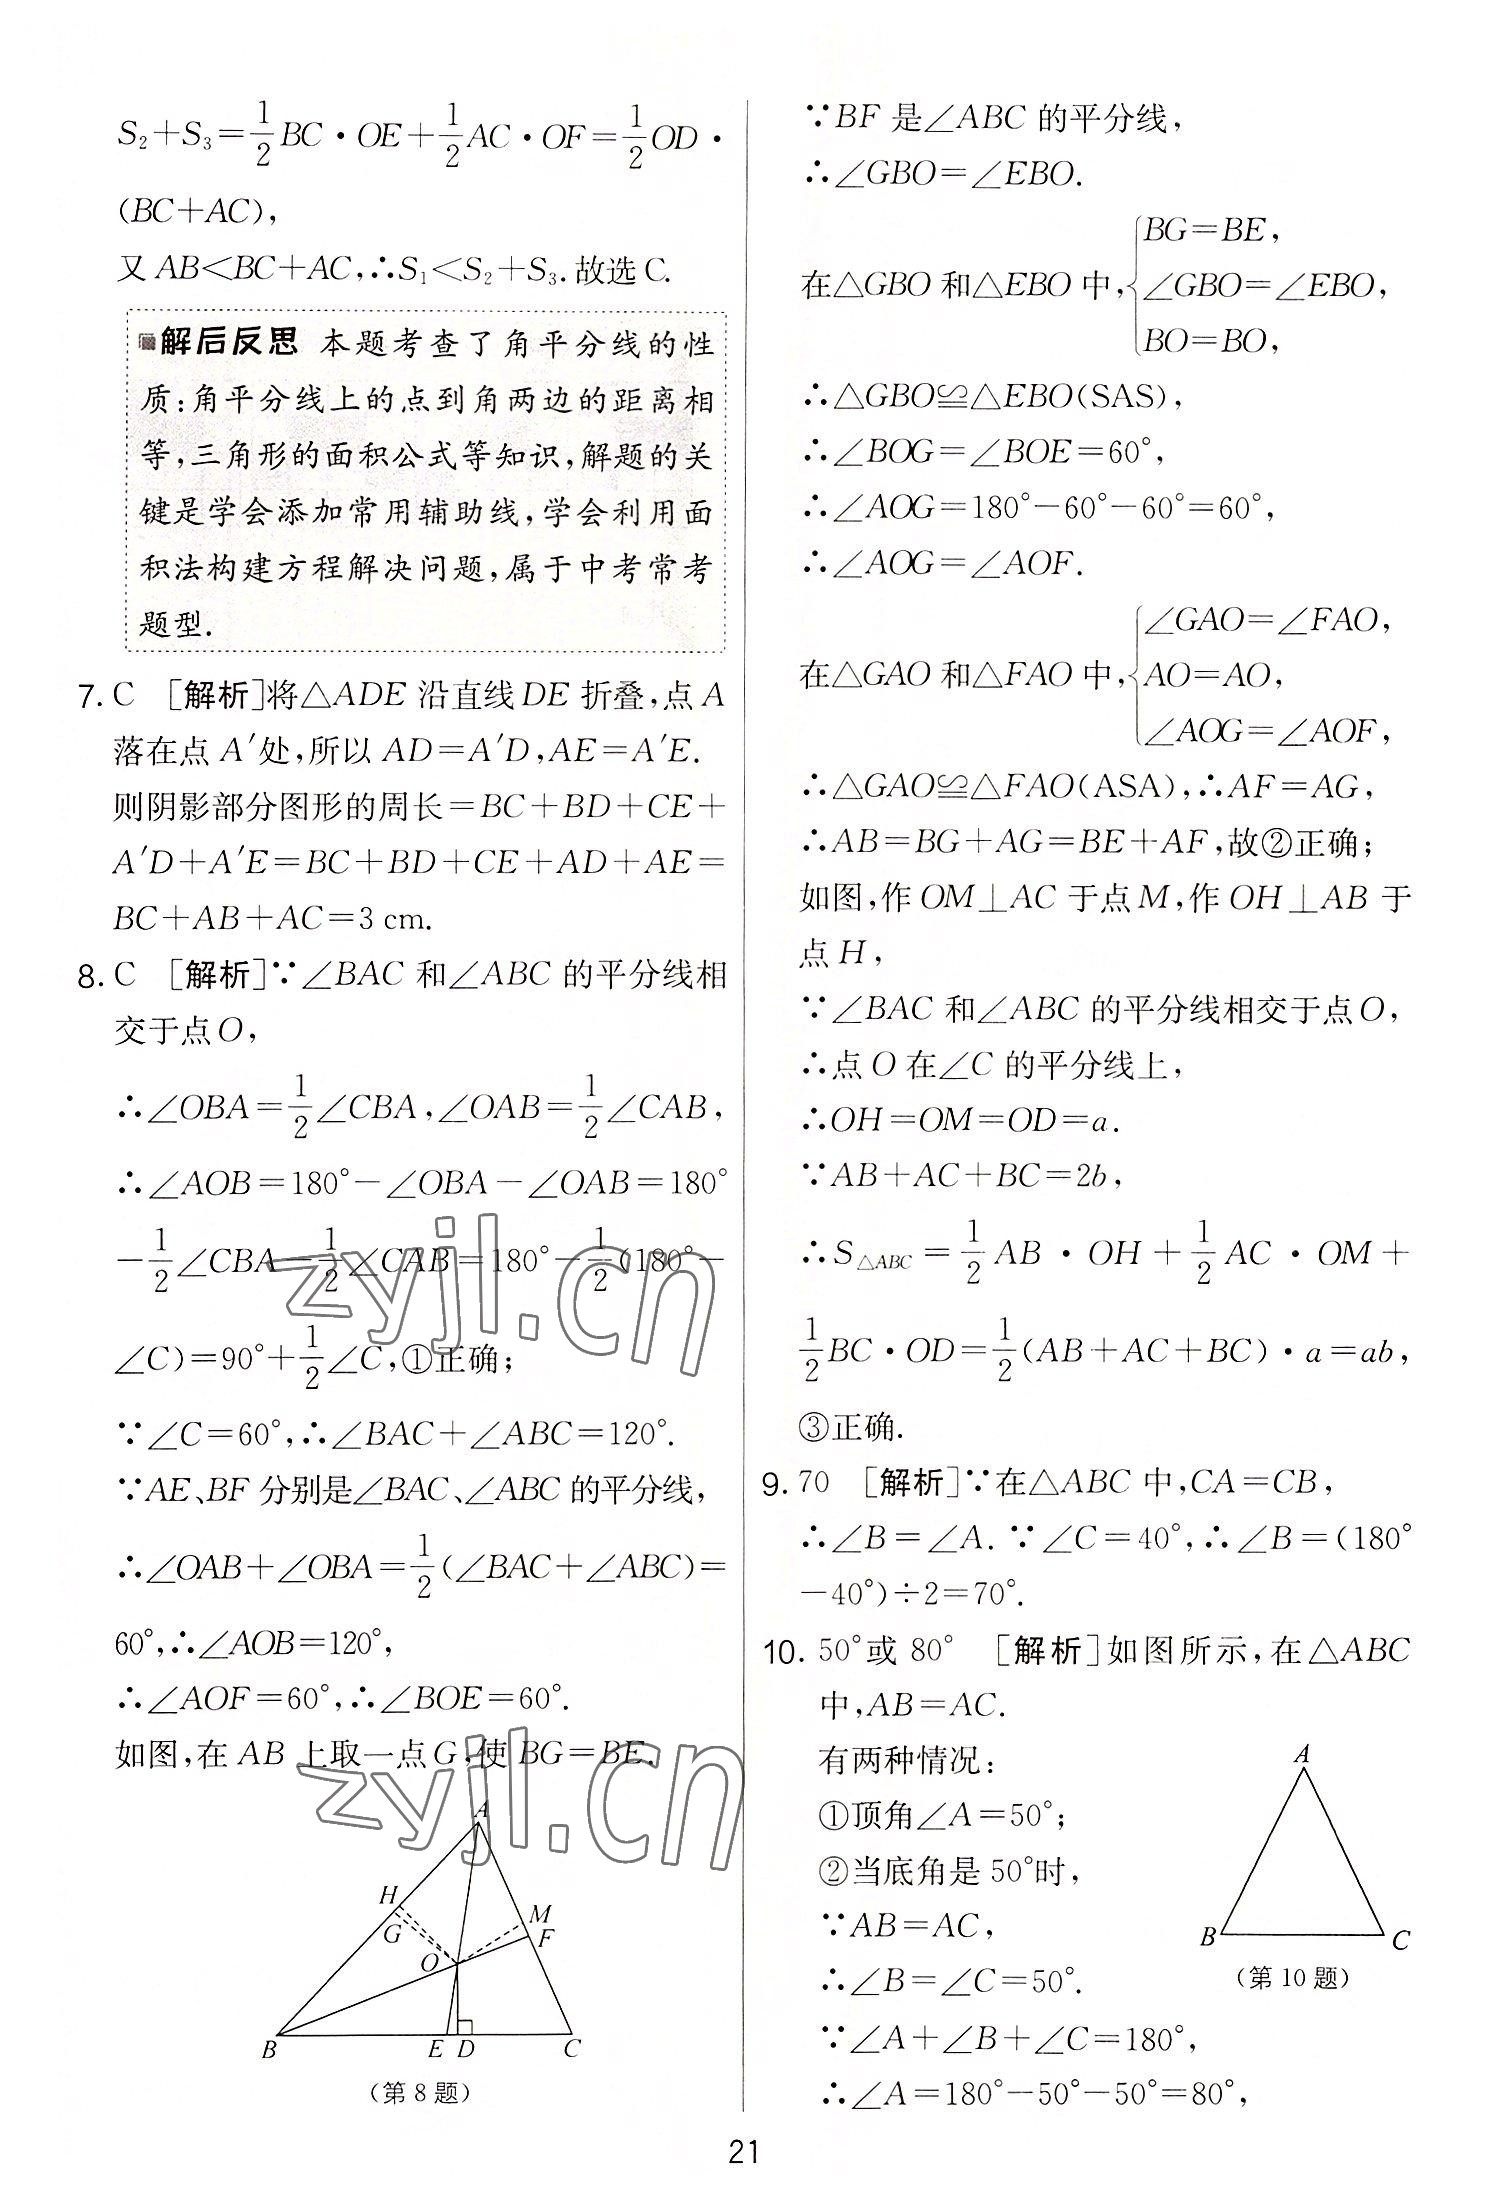 S₂+S₃=1/2BC·OE+1/2AC·OF=1/2OD·
(BC+AC),
又AB<BC+AC,∴S₁<S₂+S₃.故选C.
解后反思 本题考查了角平分线的性
质:角平分线上的点到角两边的距离相
等,三角形的面积公式等知识,解题的关
键是学会添加常用辅助线,学会利用面
积法构建方程解决问题,属于中考常考
题型.
7. C [解析]将△ADE沿直线DE折叠,点A
落在点A′处,所以AD=A′D,AE=A′E.
则阴影部分图形的周长=BC+BD+CE+
A′D+A′E=BC+BD+CE+AD+AE=
BC+AB+AC=3 cm.
8. C [解析]∵∠BAC和∠ABC的平分线相
交于点O,
∴∠OBA=1/2∠CBA,∠OAB=1/2∠CAB,
∴∠AOB=180°-∠OBA-∠OAB=180°
-1/2∠CBA-1/2∠CAB=180°-1/2(180°-
∠C)=90°+1/2∠C,①正确;
∵∠C=60°,∴∠BAC+∠ABC=120°.
∵AE、BF分别是∠BAC、∠ABC的平分线,
∴∠OAB+∠OBA=1/2(∠BAC+∠ABC)=
60°,∴∠AOB=120°,
∴∠AOF=60°,∴∠BOE=60°.
如图,在AB上取一点G,使BG=BE.
A
H
G
M
F
O
B
E
D
C
(第8题)
∵BF是∠ABC的平分线,
∴∠GBO=∠EBO.
BG=BE,
在△GBO和△EBO中,{∠GBO=∠EBO,
BO=BO,
∴△GBO≌△EBO(SAS),
∴∠BOG=∠BOE=60°,
∴∠AOG=180°-60°-60°=60°,
∴∠AOG=∠AOF.
∠GAO=∠FAO,
在△GAO和△FAO中,{AO=AO,
∠AOG=∠AOF,
∴△GAO≌△FAO(ASA),∴AF=AG,
∴AB=BG+AG=BE+AF,故②正确;
如图,作OM⊥AC于点M,作OH⊥AB于
点H,
∵∠BAC和∠ABC的平分线相交于点O,
∴点O在∠C的平分线上,
∴OH=OM=OD=a.
∵AB+AC+BC=2b,
∴S△ABC=1/2AB·OH+1/2AC·OM+
1/2BC·OD=1/2(AB+AC+BC)·a=ab,
③正确.
9. 70 [解析]∵在△ABC中,CA=CB,
∴∠B=∠A.∵∠C=40°,∴∠B=(180°
-40°)÷2=70°.
10. 50°或80° [解析]如图所示,在△ABC
中,AB=AC.
有两种情况:
①顶角∠A=50°;
②当底角是50°时,
∵AB=AC,
∴∠B=∠C=50°.
∵∠A+∠B+∠C=180°,
∴∠A=180°-50°-50°=80°,
A
B
C
(第10题)
21
zyjl.cn
zyjl.cn